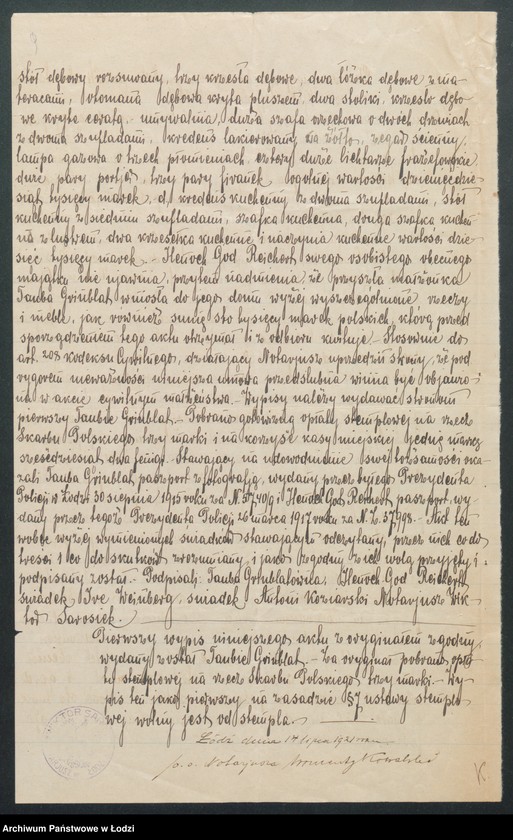 9
stół dębowy rozsuwany, trzy krzesła dębowe, dwa łóżka dębowe z ma-
teracami, otomana, dębowa kryta pluszem, dwa stoliki, krzesło dębo-
we kryte ceratą, umywalnia, duża szafa orzechowa o dwóch drzwiach
z dwoma szufladami, kredens lakierowany na żółto, zegar ścienny,
lampa gazowa o trzech płomieniach, cztery duże lichtarze frażetowskie
dwie pary portjer, trzy pary firanek ogólnej wartości dziewięćdzie-
siąt tysięcy marek, d, kredens kuchenny z dwoma szufladami, stół
kuchenny z siedmiu szufladami, szafka kuchenna, druga szafka kuchen-
na z lustrem, dwa krzesełka kuchenne i naczynia kuchenne wartości dzie-
sięć tysięcy marek. Henoch God Reichert swego osobistego obecnego
majątku nie ujawnia, przytem nadmienia, że przyszła małżonka
Tauba Grinblat wniosła do jego domu wyżej wyszczególnione rzeczy
i meble, jak również sumę sto tysięcy marek polskich, którą przed
sporządzeniem tego aktu otrzymał i z odbioru kwituje. Stosownie do
art. 208 Kodeksu Cywilnego, działający Notarjusz uprzedził strony, że pod
rygorem nieważności niniejsza umowa przedślubna winna być objawio-
na w akcie cywilnym małżeństwa. Wypisy należy wydawać stronom
pierwszy Taubie Grinblat. Pobrano gotowizną opłaty stemplowej na rzecz
Skarbu Polskiego trzy marki i na korzyść kasy miejskiej jedną markę
sześćdziesiąt dwa fenigi. Stawający na udowodnienie swej tożsamości oka-
zali Tauba Grinblat paszport z fotografją, wydany przez byłego Prezydenta
Policji w Łodzi 30 sierpnia 1915 roku za N. i Henoch God Reichert paszport, wy-
dany przez tegoż Prezydenta Policji 26 marca 1917 roku za N. L. 57998. Akt ten
wobec wyżej wymienionych świadków stawającym odczytany, przez nich co do
treści i co do skutków zrozumiany i jako zgodny z ich wolą przyjęty i
podpisany został. Podpisali: Tauba Grinblatówna, Henoch God Reichert
świadek Icie Weinberg, świadek Antoni Koziarski Notarjusz Wik-
tor Sarosiek.
Pierwszy wypis niniejszego aktu z oryginałem zgodny,
wydany został Taubie Grinblat. Za oryginał pobrano opła-
tę stemplowej na rzecz Skarbu Polskiego trzy marki. Wy-
pis ten jako pierwszy na zasadzie §7 ustawy stemplo-
wej wolny jest od stempla.
Łódź dnia 14 lipca 1921 roku
p. o. Notarjusza Kowalski
K.
Archiwum Państwowe w Łodzi